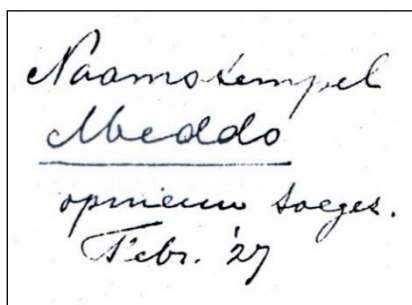 Naamstempel
Meddo
opnieuw toegez.
Febr. '27